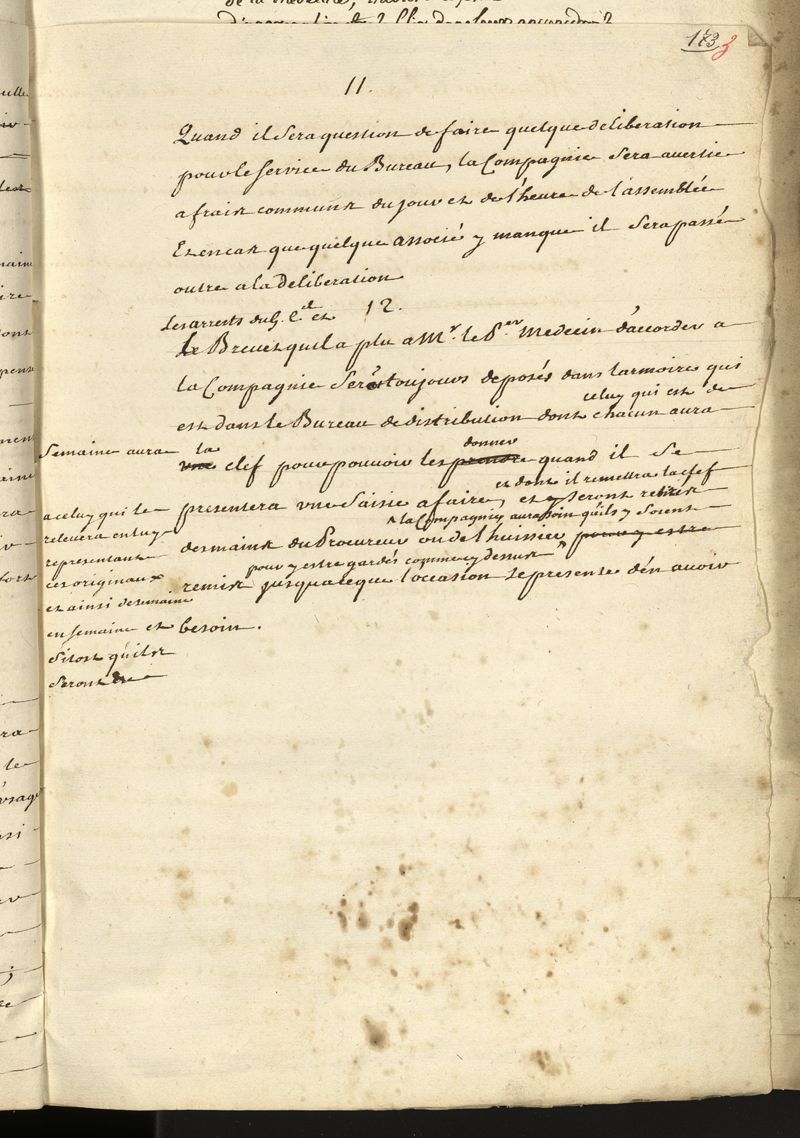 173
3
11.
Quand il sera question de faire quelque deliberation
pour le service du Bureau, la Compagnie sera avertie
a frais communs du jour et de l'heure de l'assemblée
Et en cas que quelque associé y manque il sera passé
outre a la deliberation
12.
Les arrests du G. C.il et
Le Brevet qu'il a plu a Mr. le Per. Medecin d'accorder a
la Compagnie seront toujours deposés dans l'armoire qui
celuy qui est de
est dans le Bureau de distribution dont chacun aura
Semaine aura la
donner
une clef pour pouvoir les prendre quand il se
et dont il remettra la clef
presentera une saisie a faire, et y seront retirés
la Compagnie aura soin qu'ils y soient
des mains du Procureur ou de l'huissier pour y estre
pour y estre gardés comme cy dessus
remis jusqu'a ce que l'occasion se presente d'en avoir
besoin.
a celuy qui le
relevera en luy
representant
ces originaux
et ainsi de semaine
en semaine et
sitost qu'ils
seront